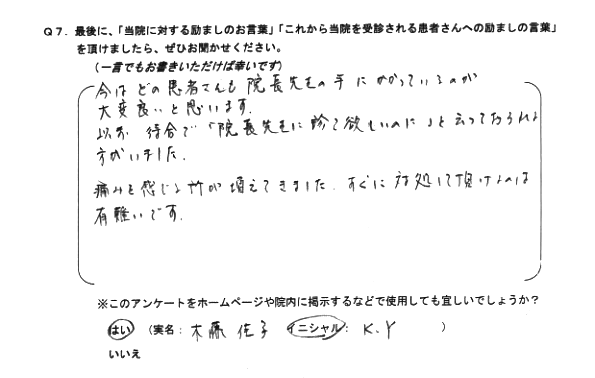 Q7. 最後に、「当院に対する励ましのお言葉」「これから当院を受診される患者さんへの励ましの言葉」
を頂けましたら、ぜひお聞かせください。
(一言でもお書きいただけば幸いです)
今は どの患者さんも 院長先生の手に かかっているのが
大変良いと思います.
以前 待合で「院長先生に診て欲しいのに」と云っておられる
方がいました.
痛みを感じる所が増えてきました. すぐに対処して頂けるのは
有難いです.
※このアンケートをホームページや院内に掲示するなどで使用しても宜しいでしょうか?
はい (実名: 木藤 佳子 イニシャル: K.Y )
いいえ